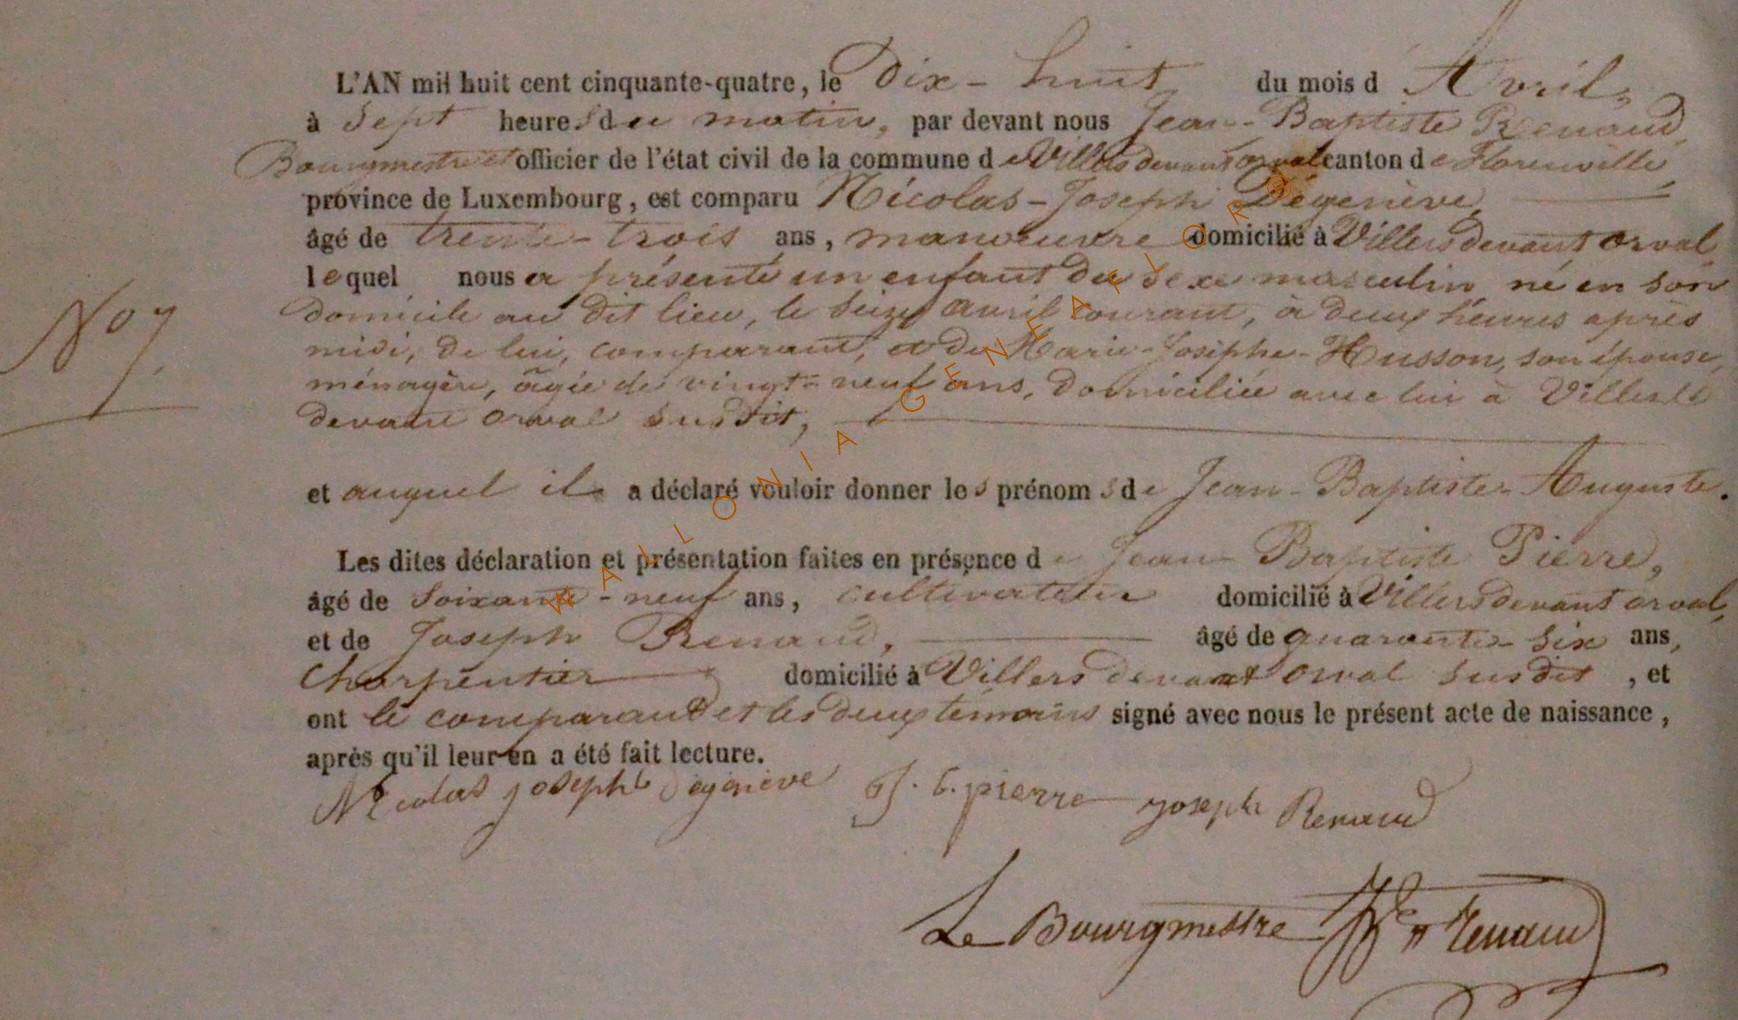 L'AN mil huit cent cinquante-quatre, le Dix-huit du mois d'Avril,
à Sept heures du matin, par devant nous Jean-Baptiste Renaud,
Bourgmestre et officier de l'état civil de la commune de Villers devant orval canton de Florenville,
province de Luxembourg, est comparu Nicolas-Joseph Dégenève,
âgé de trente-trois ans, manoeuvre domicilié à Villers devant orval
lequel nous a présenté un enfant du sexe masculin né en son
domicile au dit lieu, le Seize avril courant, à deux heures après
midi, de lui, comparant, et de Marie-Josèphe-Husson, son épouse,
ménagère, âgée de vingt-neuf ans, domiciliée avec lui à Villers
devant orval susdit,
N° 7.
et auquel il a déclaré vouloir donner les prénoms de Jean-Baptiste-Auguste.
Les dites déclaration et présentation faites en présence de Jean Baptiste Pierre,
âgé de Soixante-neuf ans, cultivateur domicilié à Villers devant orval,
et de Joseph Renaud, âgé de quarante-six ans,
Charpentier domicilié à Villers devant orval susdit, et
ont le comparant et les deux témoins signé avec nous le présent acte de naissance,
après qu'il leur en a été fait lecture.
Nicolas joseph Dégénève J. b. pierre joseph Renaud
Le Bourgmestre Renaud
WALLONIA-GENEAFLOR®